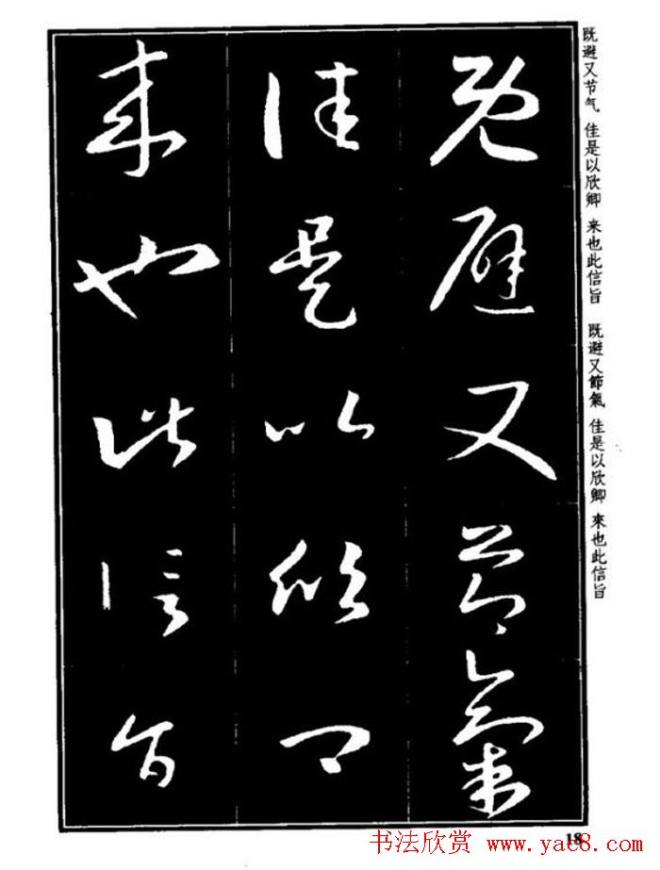 既避又節氣
佳是以欣卿
來也此信旨
既避又节气 佳是以欣卿 来也此信旨 既避又節氣 佳是以欣卿 來也此信旨
18
书法欣赏 www.yac8.com